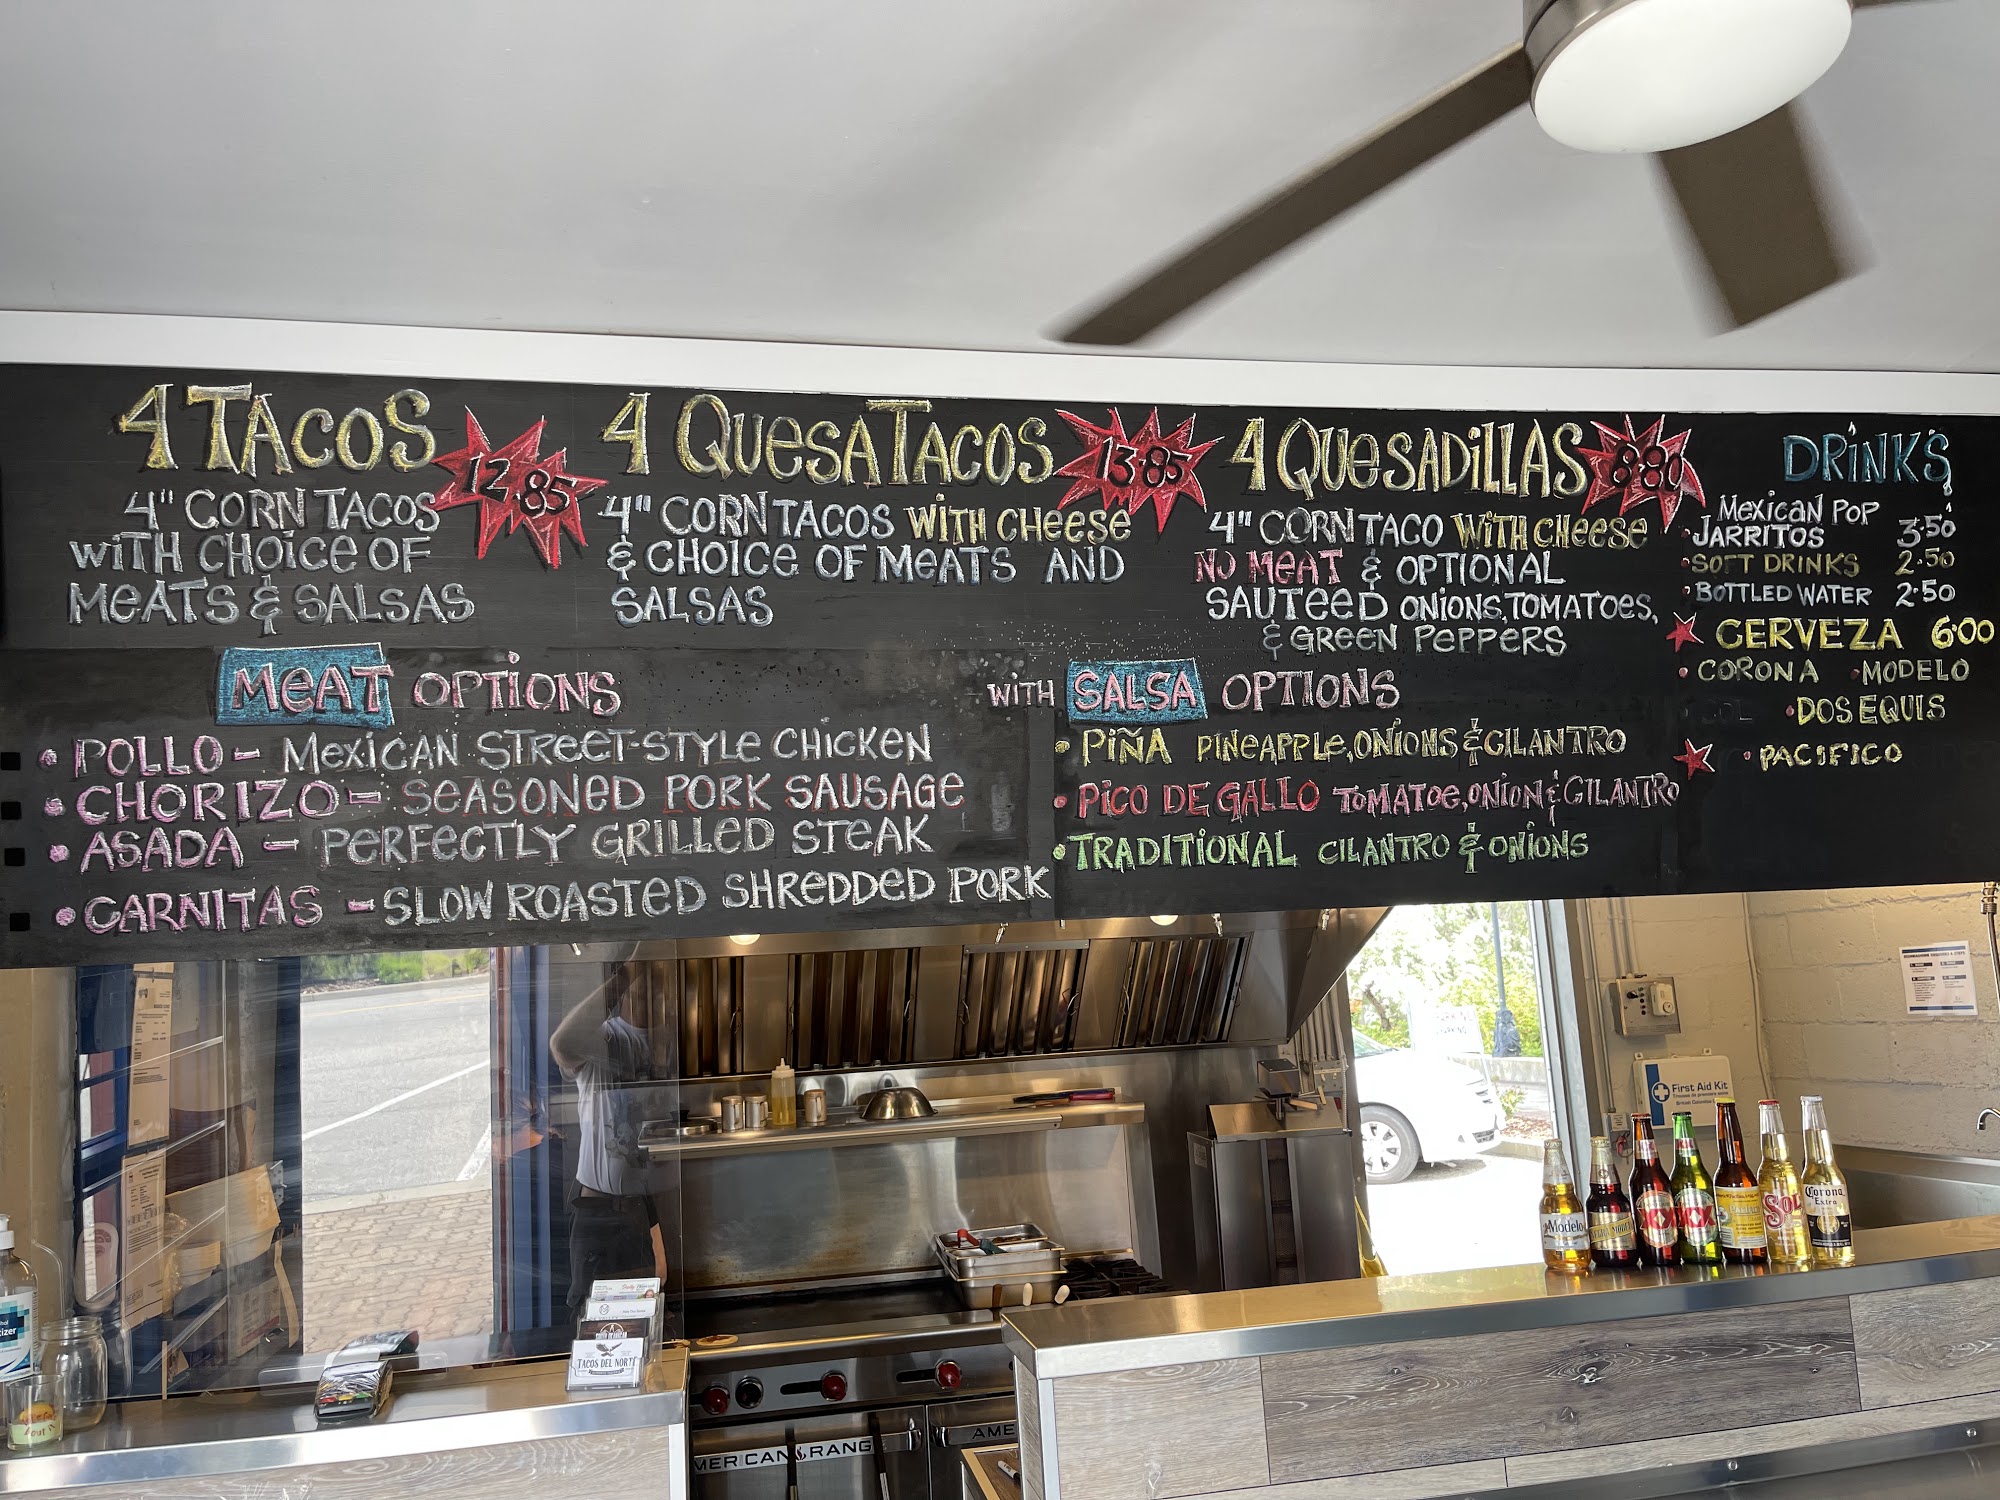 4 TACOS
12.85
4" CORN TACOS
WITH CHOICE OF
MEATS & SALSAS
4 QUESATACOS
13.85
4" CORN TACOS WITH CHEESE
& CHOICE OF MEATS AND
SALSAS
4 QUESADILLAS
8.80
4" CORN TACO WITH CHEESE
NO MEAT & OPTIONAL
SAUTEED ONIONS, TOMATOES,
& GREEN PEPPERS
DRINKS
MEXICAN POP
• JARRITOS 3.50
• SOFT DRINKS 2.50
• BOTTLED WATER 2.50
CERVEZA 6.00
• CORONA • MODELO
• DOS EQUIS
• PACIFICO
MEAT OPTIONS
• POLLO - MEXICAN STREET-STYLE CHICKEN
• CHORIZO - SEASONED PORK SAUSAGE
• ASADA - PERFECTLY GRILLED STEAK
• CARNITAS - SLOW ROASTED SHREDDED PORK
WITH SALSA OPTIONS
• PIÑA PINEAPPLE, ONIONS & CILANTRO
• PICO DE GALLO TOMATOE, ONION & CILANTRO
• TRADITIONAL CILANTRO & ONIONS
First Aid Kit
Modelo
XX
XX
Sol
Corona
Extra
TACOS DEL NORTE
MERICAN RANG
AME